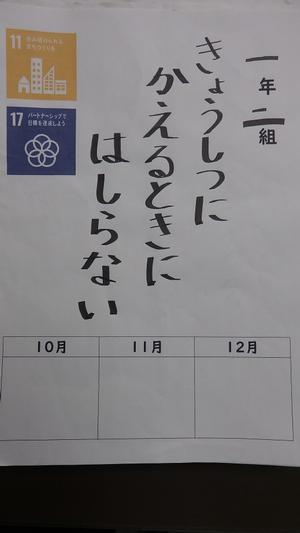 11 住み続けられる
まちづくりを
17 パートナーシップで
目標を達成しよう
一年二組
きょうしつに
かえるときに
はしらない
10月 11月 12月